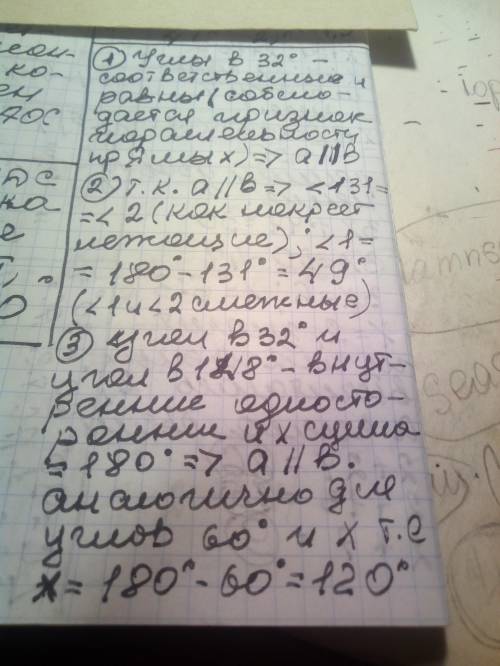 ① Углы в 32° –
соответственные и
равны (соблю-
дается признак
параллельности
прямых) => a||b
② т.к. a||b => <131=
=<2 (как накрест
лежащие); <1=
= 180° - 131° = 49°
(<1 и <2 смежные)
③ угол в 32° и
угол в 148° - внут-
ренние односто-
ронние их сумма
= 180° => a||b.
аналогично для
углов 60° и x т.е
x = 180° - 60° = 120°